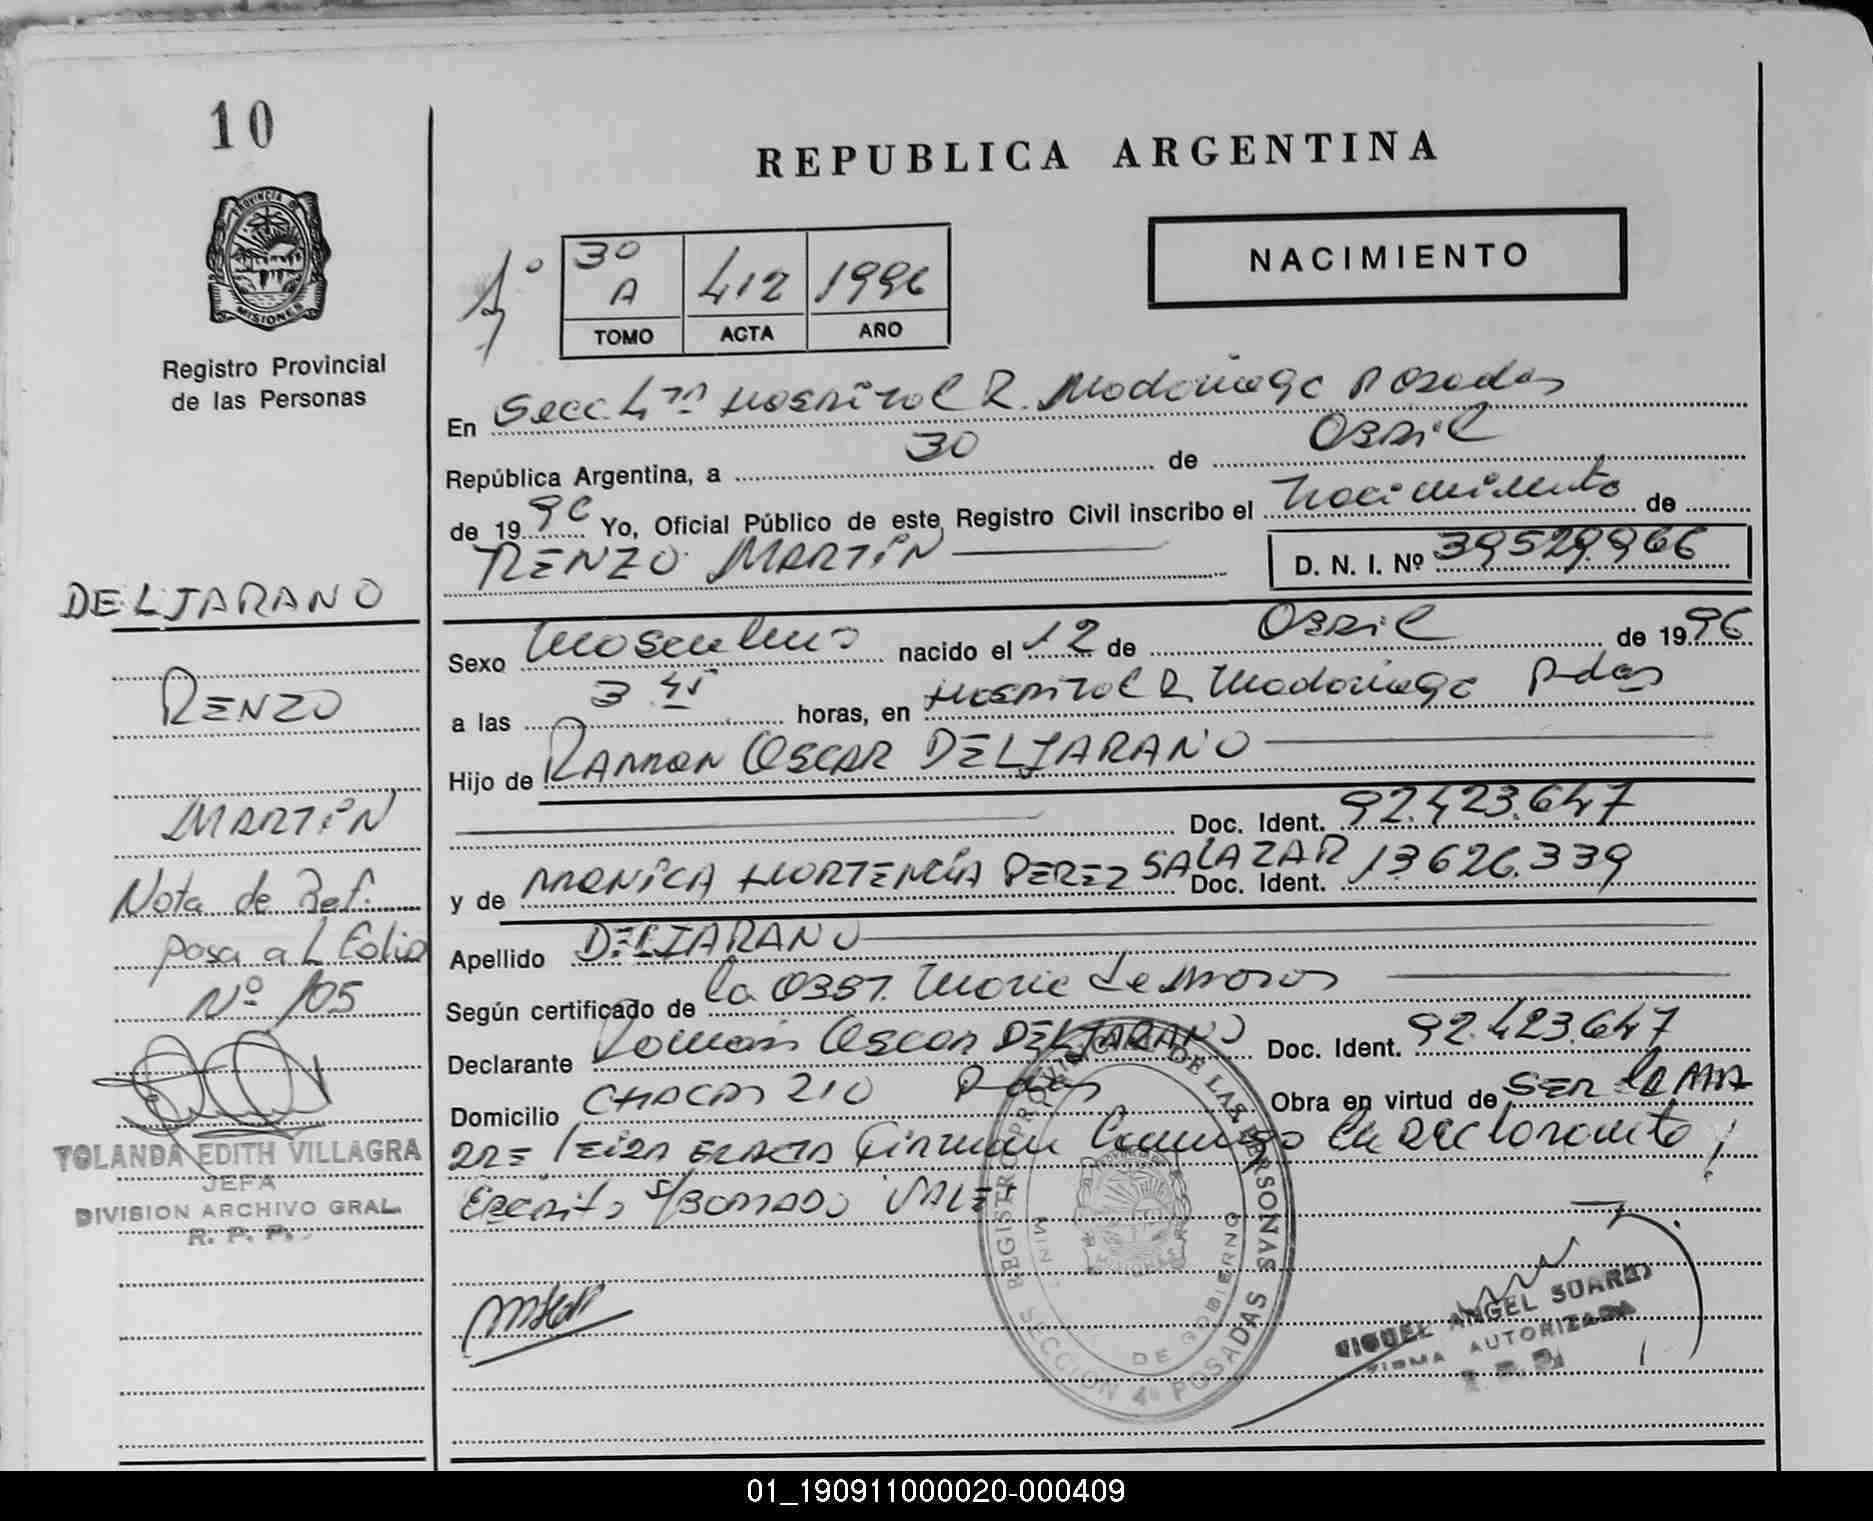 10
REPUBLICA ARGENTINA
PROVINCIA DE
MISIONES
Registro Provincial
de las Personas
NACIMIENTO
1º
30 A 412 1996
TOMO ACTA AÑO
En Secc 4ta Hospital R. Madariaga Posadas
República Argentina, a 30 de Abril
de 1996 Yo, Oficial Público de este Registro Civil inscribo el Nacimiento de
RENZO MARTIN D. N. I. Nº 39529.966
DELJARANO
RENZO
MARTIN
Nota de Ref.
pasa al Folio
Nº 105
YOLANDA EDITH VILLAGRA
JEFA
DIVISION ARCHIVO GRAL.
R. P. P.
Sexo Masculino nacido el 12 de Abril de 1996
a las 3 45 horas, en Hospital R Madariaga Pdas
Hijo de RAMON OSCAR DELJARANO
Doc. Ident. 92.423.647
y de MONICA HORTENCIA PEREZ SALAZAR Doc. Ident. 13.626.339
Apellido DELJARANO
Según certificado de la Obst. Maria
Declarante Ramón Oscar DELJARANO Doc. Ident. 92.423.647
Domicilio CHACAS 210 Pdas Obra en virtud de SER
Leída Firman Conmigo
Escrito s/BORRADO VALE
REGISTRO PROVINCIAL DE LAS PERSONAS
MIN. DE GOBIERNO
SECCION 4ª POSADAS
MIGUEL ANGEL SUAREZ
FIRMA AUTORIZADA
01_190911000020-000409